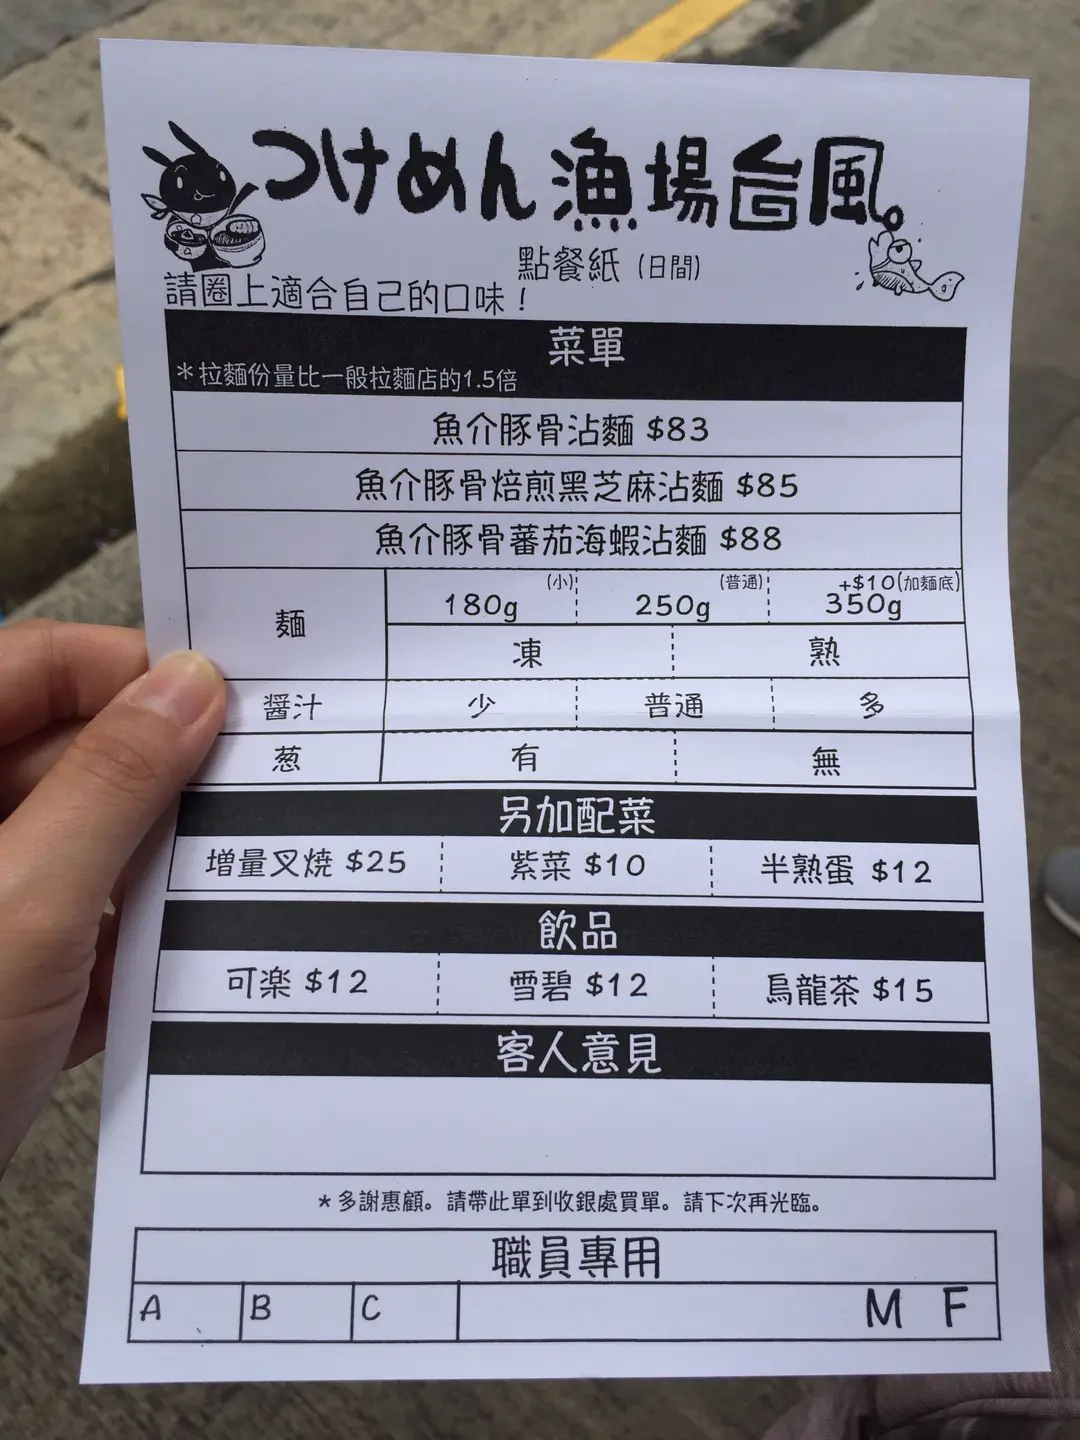 つけめん漁場台風。
點餐紙（日間）
請圈上適合自己的口味！
菜單
＊拉麵份量比一般拉麵店的1.5倍
魚介豚骨沾麵 $83
魚介豚骨焙煎黑芝麻沾麵 $85
魚介豚骨蕃茄海蝦沾麵 $88
麵 180g（小） 250g（普通） 350g +$10（加麵底）
凍 熟
醬汁 少 普通 多
葱 有 無
另加配菜
增量叉燒 $25 紫菜 $10 半熟蛋 $12
飲品
可楽 $12 雪碧 $12 烏龍茶 $15
客人意見
＊多謝惠顧。請帶此單到收銀處買單。請下次再光臨。
職員專用
A B C M F